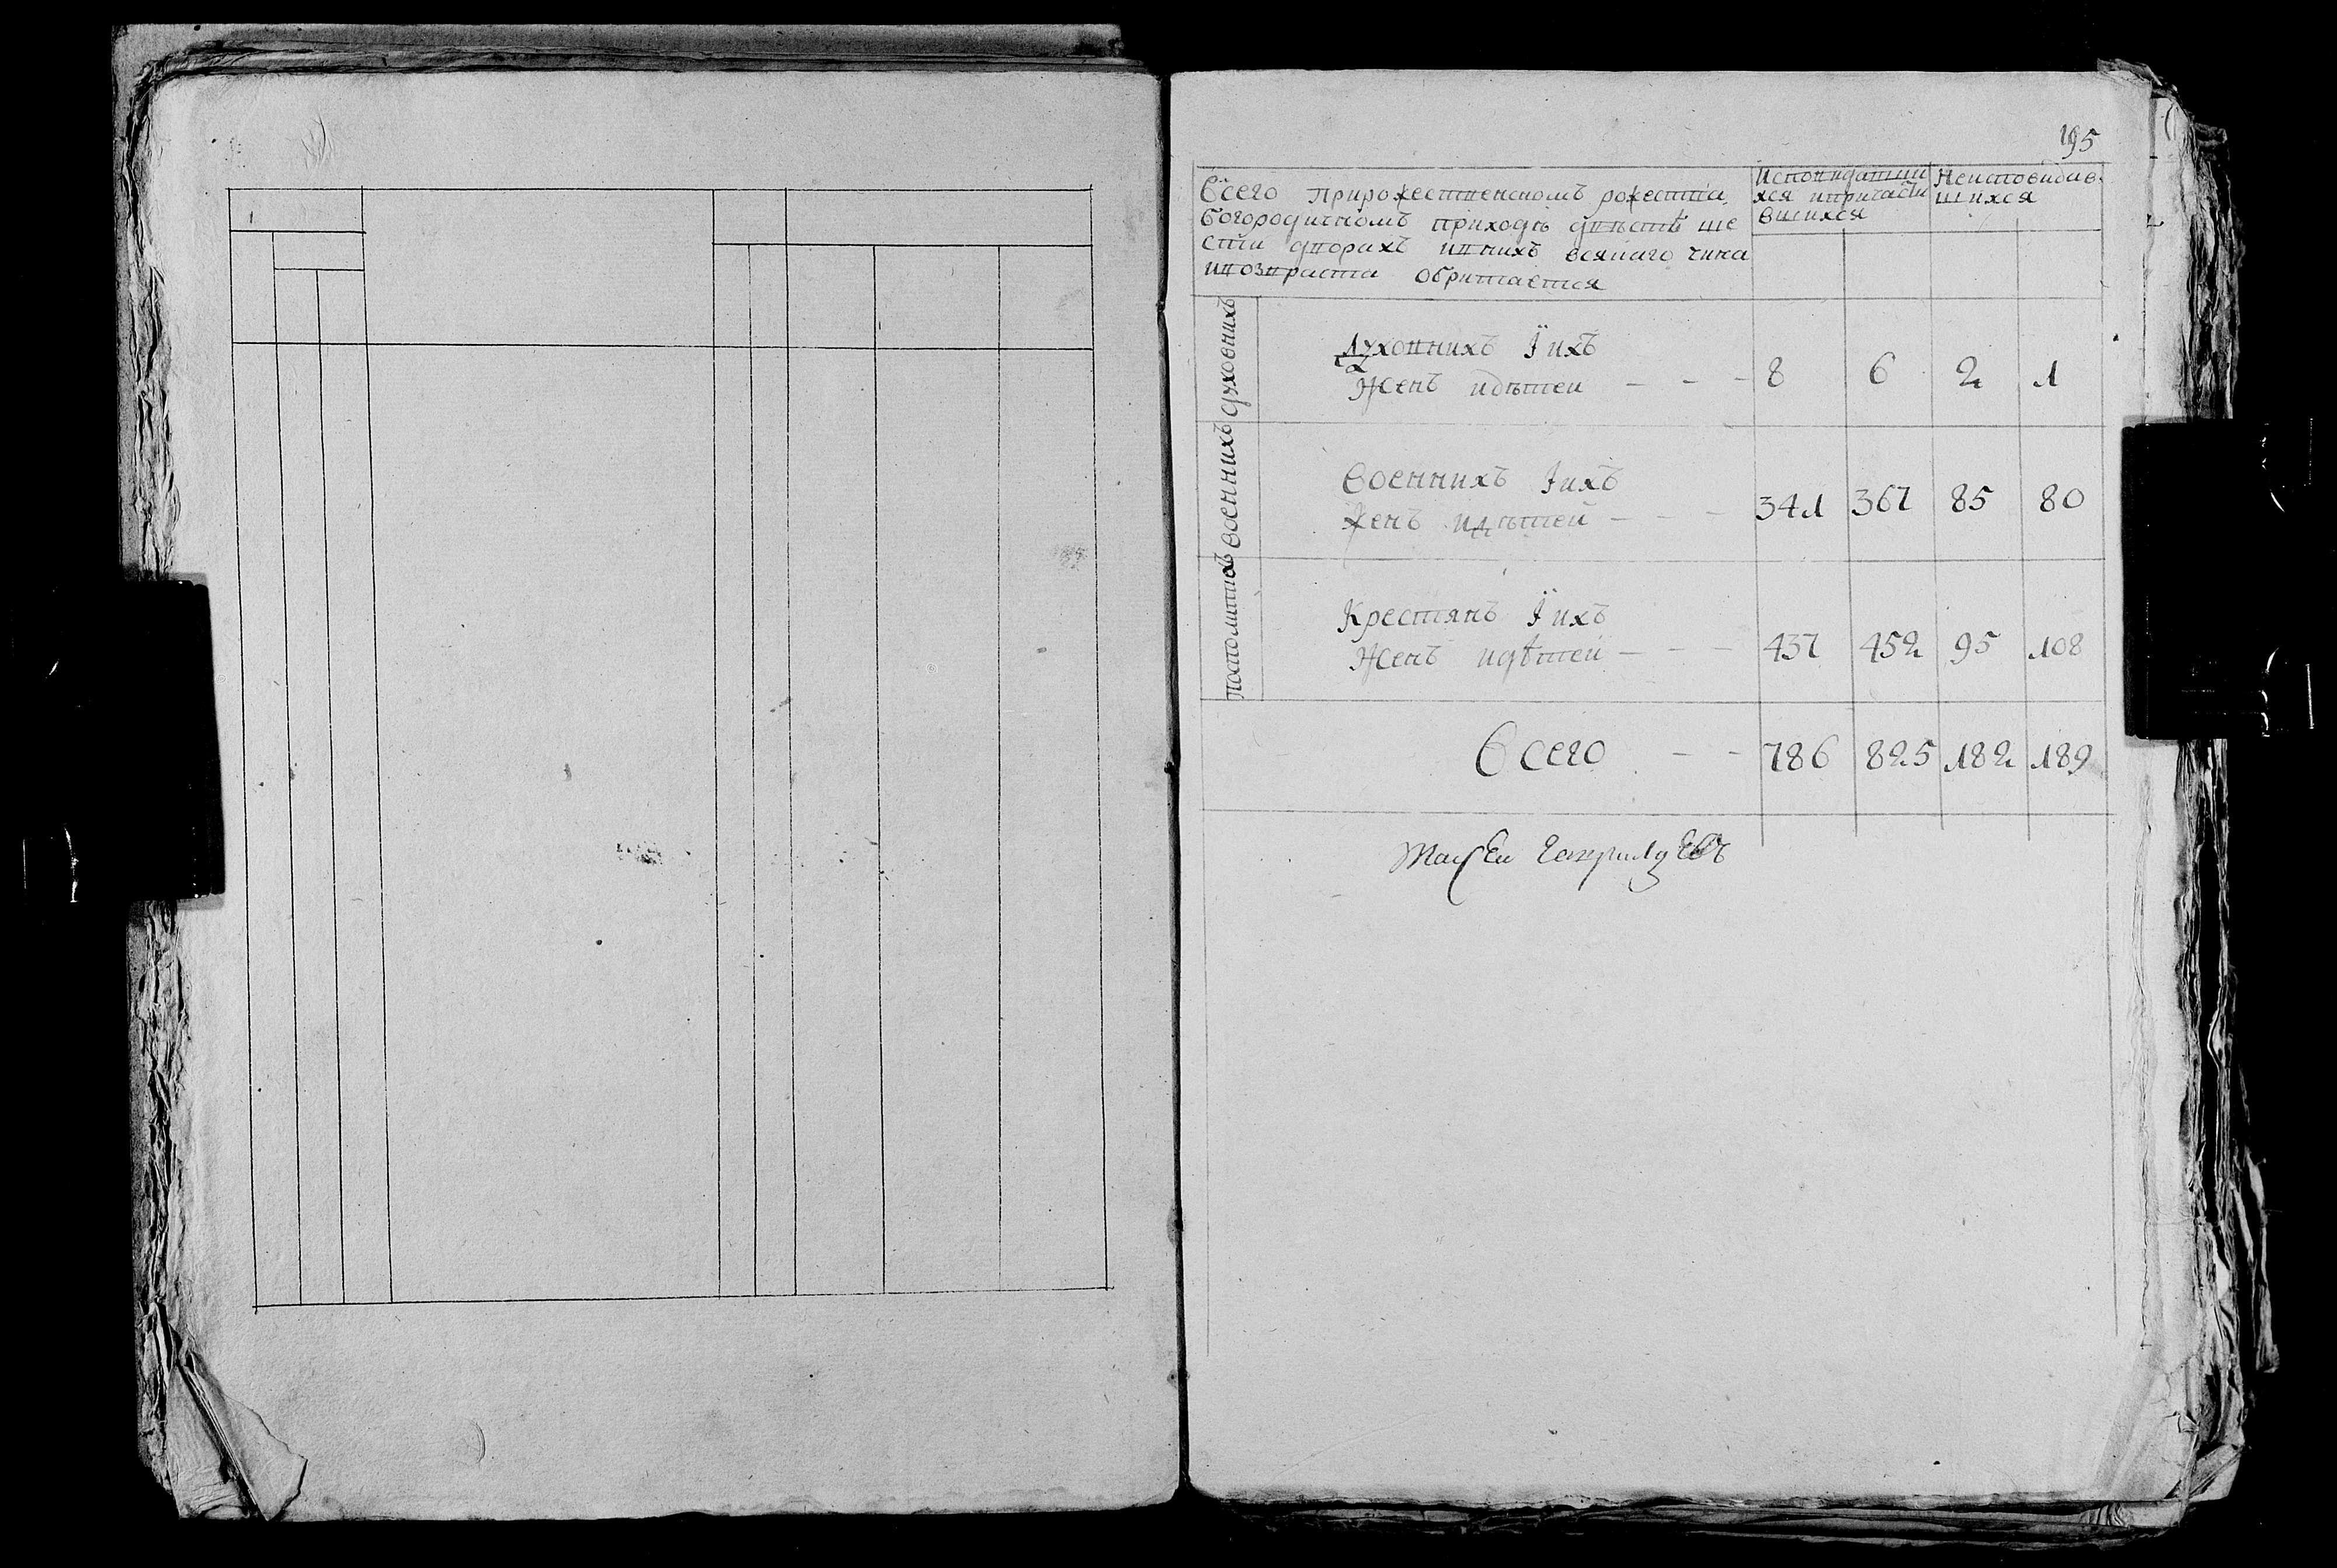 195
Всего прирожественскомъ рожества
богородичномъ приходѣ двѣстѣ ше
сти дворихъ инихъ всякаго чина
ивозираста обритается
Исповидавши
хся ипричасти
вшихся
Неисповидав
шихся
духовнихъ
Духовнихъ їихъ
Женъ идѣтеи - - - 8 6 2 1
военнихъ
Военнихъ їихъ
женъ идѣтей - - - 341 367 85 80
посполитихъ
Крестянъ їихъ
Женъ идѣтей - - - 437 452 95 108
Всего - - 786 825 182 189